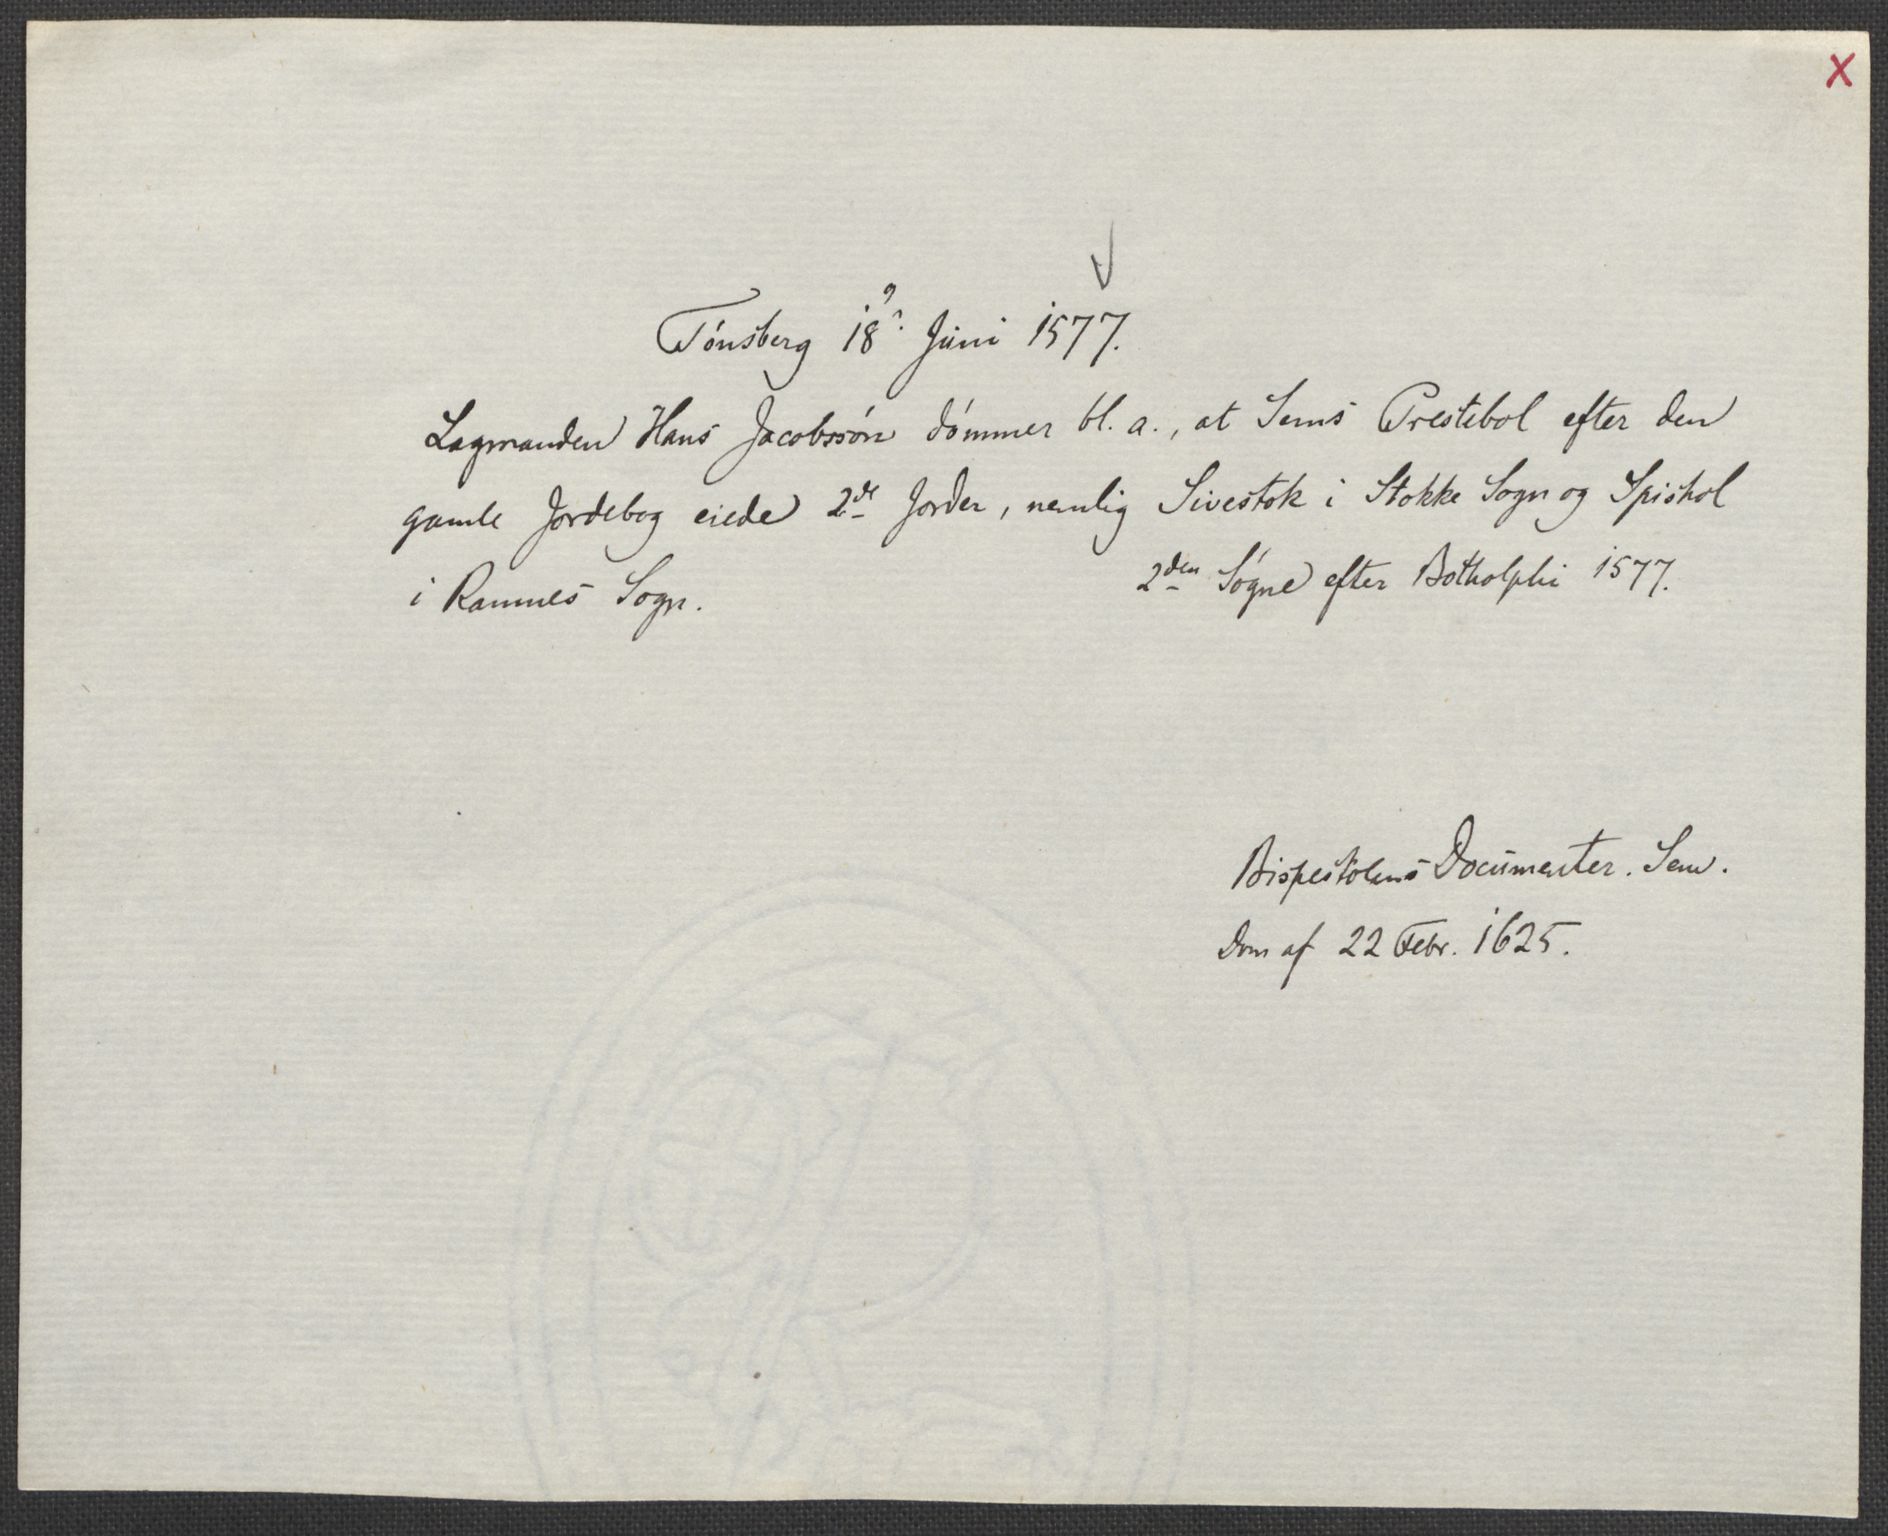 X
Tónsberg 18?. Juni 1577.
Lagmanden Hans Jacobssón dómmer bl. a., at Sems Prestebol efter den
gamle Jordebog eiede 2de Jorder, nemlig Sivestok i Stokke Sogn og Spishol
i Ramnes Sogn.
2den Sógne efter Botholphi 1577.
Bispestolens Documenter. Sem.
Dom af 22 Febr. 1625.